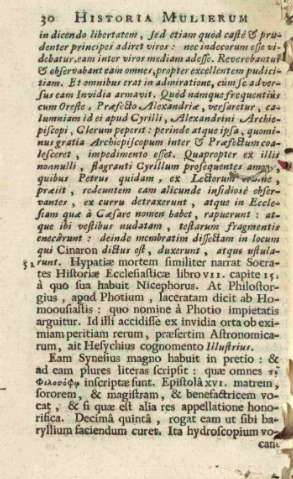 30 HISTORIA MULIERUM
in dicendo libertatem, sed etiam quòd castè & pru-
denter principes adiret viros: nec indecorum esse vi-
debatur, eam inter viros mediam adesse. Reverebantur
& observabant eam omnes, propter excellentem pudici-
tiam. Et omnibus erat in admiratione, cùm se adver-
sus eam Invidia armavit. Quòd namque frequentiùs
cum Oreste, Præfecto Alexandriæ, versaretur, ca-
lumniam id ei apud Cyrilli, Alexandrini Archie-
piscopi, Clerum peperit: perinde atque ipsa, quomi-
nus gratia Archiepiscopum inter & Præfectum coa-
lesceret, impedimento esset. Quapropter ex illis
nonnulli, flagranti Cyrillum prosequentes amore,
quibus Petrus quidam ex Lectorum
præiit, redeuntem eam alicunde insidiosè obser-
vantes, ex curru detraxerunt, atque in Eccle-
siam quæ à Cæsare nomen habet, rapuerunt: at-
que ibi vestibus nudatam, testarum fragmentis
enecârunt: deinde membratim dissectam in locum
qui Cinaron dictus est, duxerunt, atque ustula-
51 runt. Hypatiæ mortem similiter narrat Socra-
tes Historiæ Ecclesiasticæ libro VII. capite 15.
à quo sua habuit Nicephorus. At Philostor-
gius, apud Photium, laceratam dicit ab Ho-
moousiastis: quo nomine à Photio impietatis
arguitur. Id illi accidisse ex invidia orta ob exi-
miam peritiam rerum, præsertim Astronomica-
rum, ait Hesychius cognomento Illustrius.
Eam Synesius magno habuit in pretio: &
ad eam plures literas scripsit: quæ omnes τῇ
Φιλοσόφῳ inscriptæ sunt. Epistolâ XVI. matrem,
sororem, & magistram, & benefactricem vo-
cat, & si quæ est alia res appellatione hono-
rifica. Decimâ quintâ, rogat eam ut sibi ba-
ryllium faciendum curet. Ita hydroscopium vo-
cant